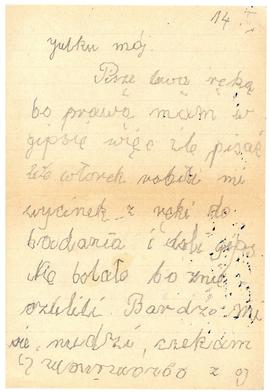 14
Julku mój.
Piszę lewą ręką
bo prawą mam w
gipsie więc źle pisać
We wtorek robili mi
wycinek z ręki do
badania i dali gips
Nie bolało bo znie
czulili Bardzo mi
się nudzi, czekam
z